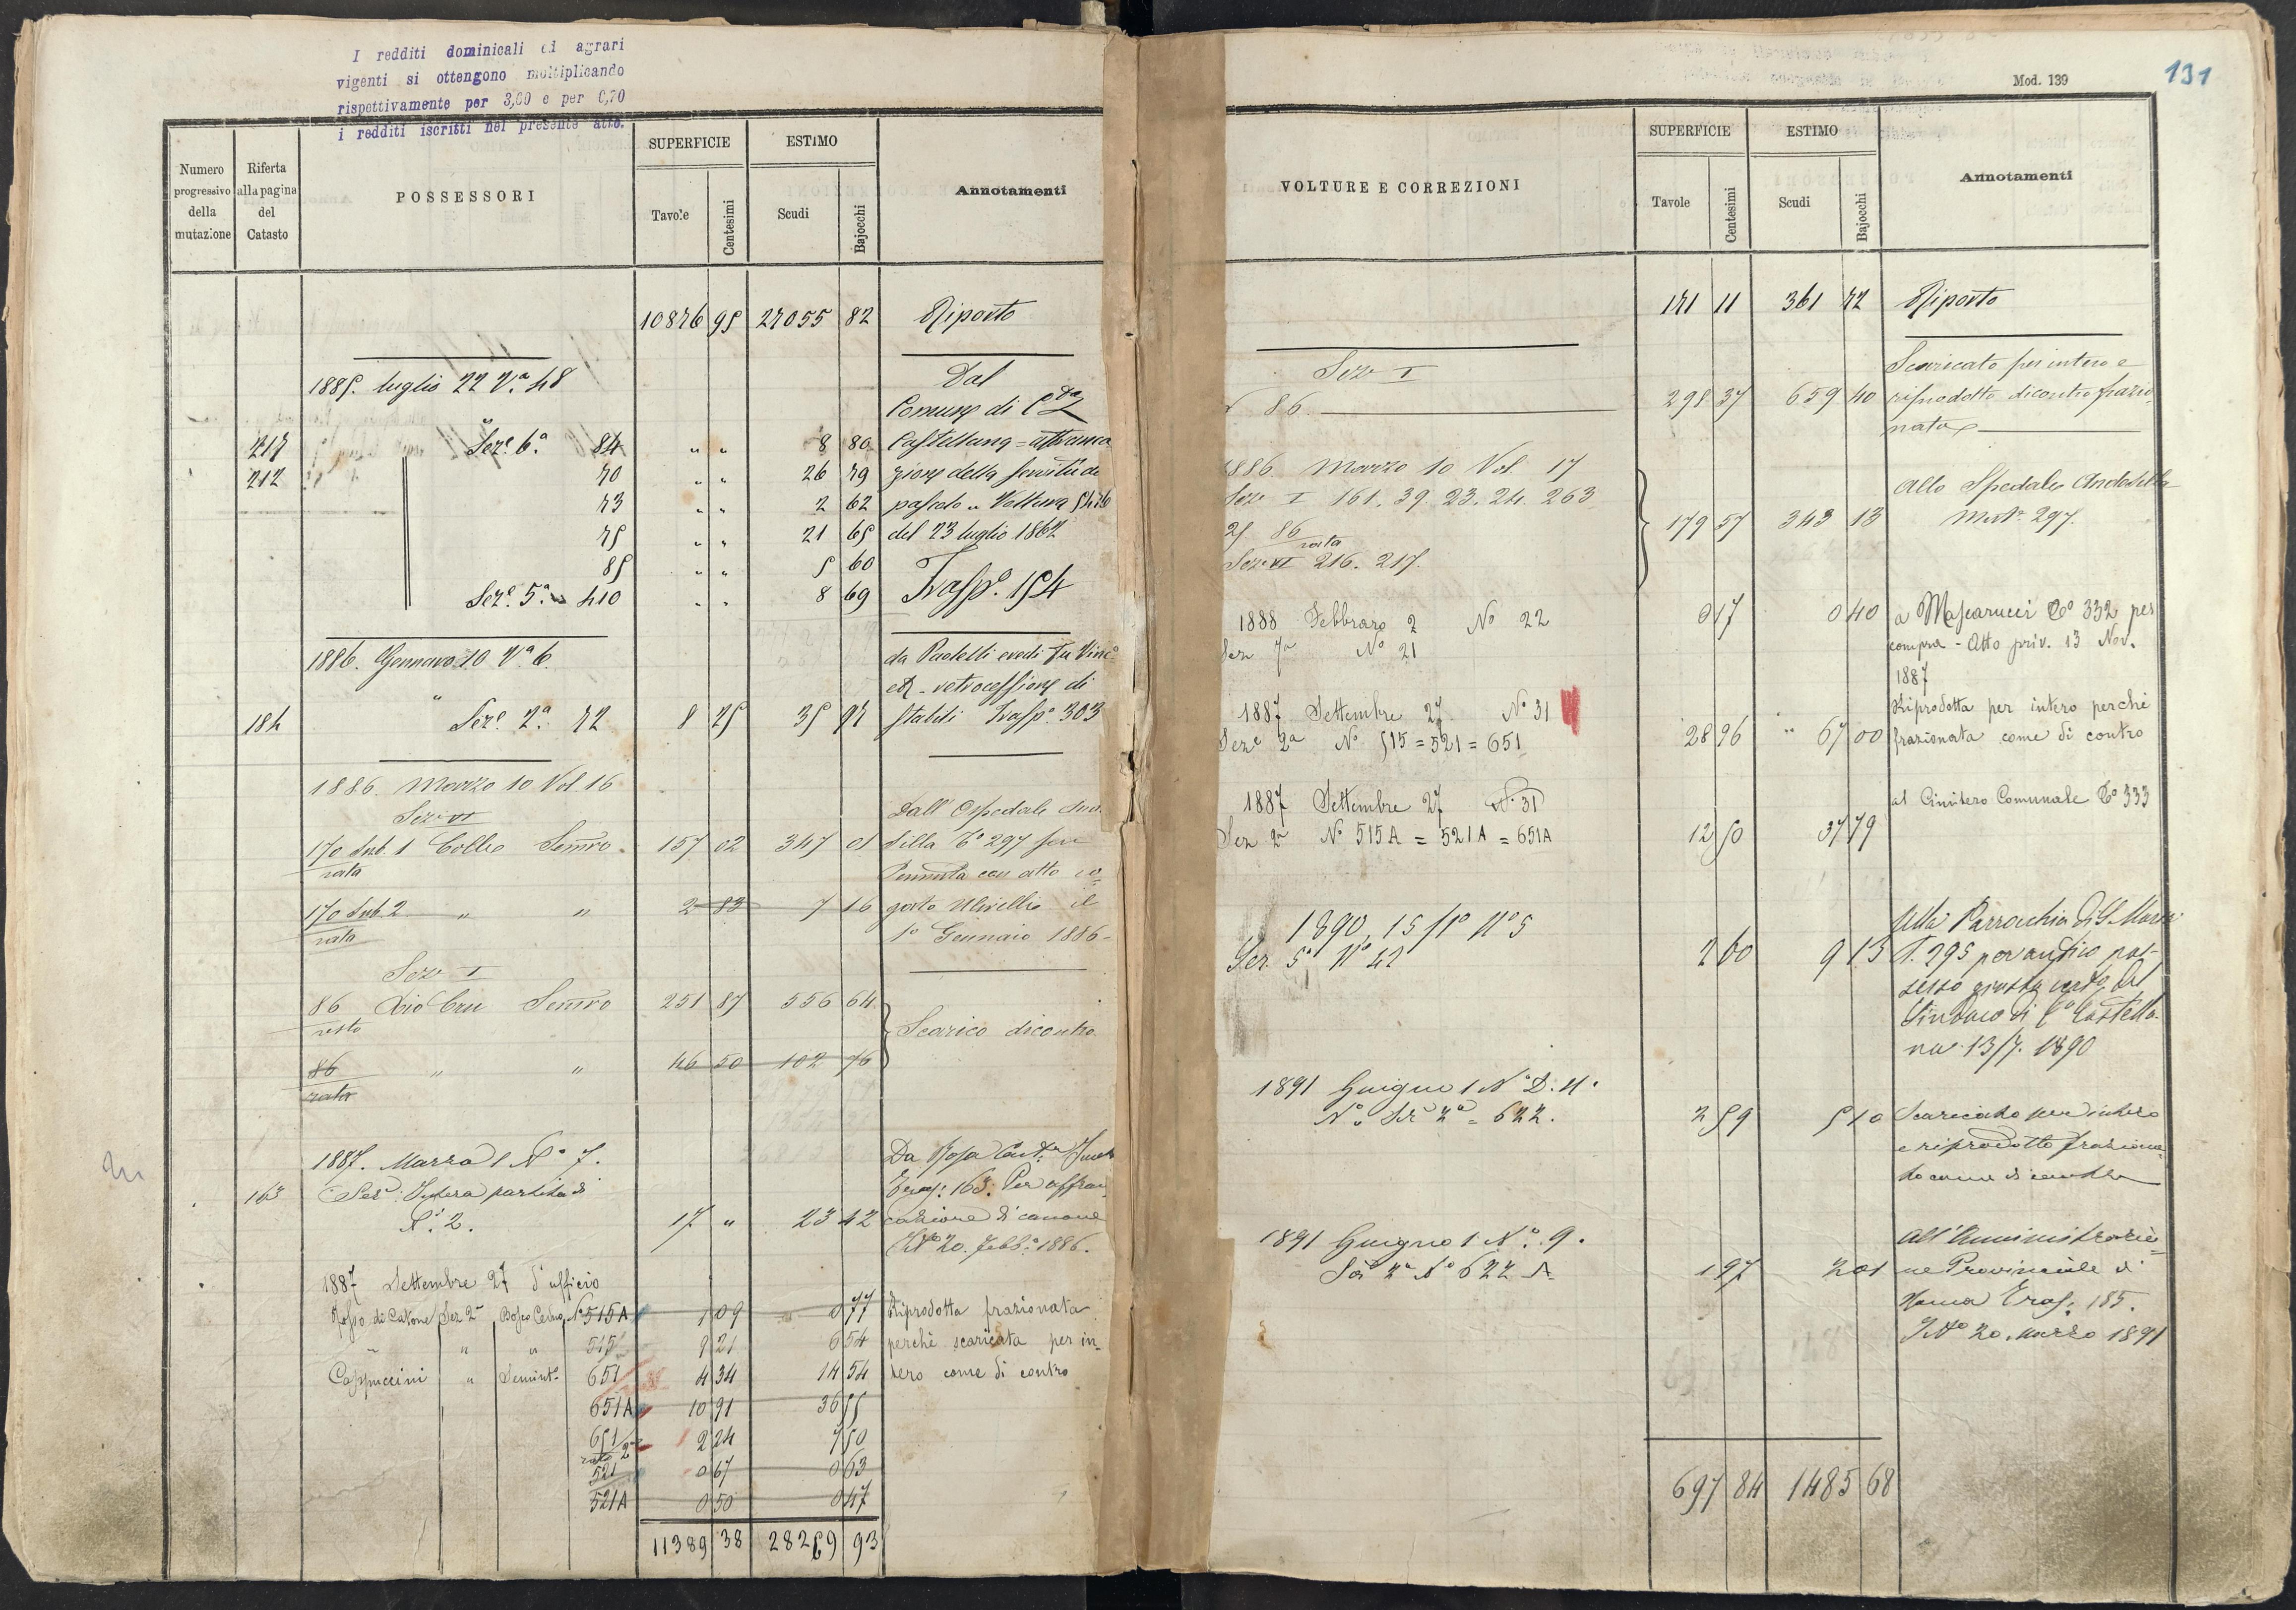 I redditi dominicali ed agrari
vigenti si ottengono moltiplicando
rispettivamente per 3,00 e per 0,70
i redditi iscritti nel presente atto.
Numero progressivo della mutazione
Riferta alla pagina del Catasto
POSSESSORI
SUPERFICIE
Tavole Centesimi
ESTIMO
Scudi Bajocchi
Annotamenti
10876 95 27055 82 Riporto
1885. luglio 22 Va. 48
Dal
Comune di
217 Seze. 6a 84 " " 8 80 Castellana = affranca
212 70 " " 26 79 zione della servitù di
73 " " 2 62 pascolo
75 " " 21 65 del 23 luglio 1862
85 " " 5 60
Seze. 5a 410 " " 8 69 Trasp. 154
1886. Gennaro 10 Va 6.
da Paolelli eredi fu Vinc
retrocessione di
184 " Seze. 2a 72 8 25 35 97 stabili Trasp. 303
1886. Marzo 10 Vol. 16
Sez VI
Dall' Ospedale
170 Sub. 1 Colle Semvo. 157 02 347 01 silla To 297 per
rata
Permuta con atto
170 Sub. 2 " " 2 83 7 16
rata
1o Gennaio 1886
Sez I
86 Semvo 251 87 556 64
resto
Scarico dicontro
86 " " 46 50 102 76
rata
1887. Marzo 1 No 7.
163 Intera partita di
No. 2. 17 " 23 42 cazione di canone
Trasp: 163. Per affran
20. Febb: 1886.
1887 Settembre 27 d'ufficio
Fosso di Catone Sez 2a Bosco Ceduo No 515A 1 09 0 77 Riprodotta frazionata
" " " 515 9 21 6 54 perchè scaricata per in=
Cappuccini " Semint. 651 4 34 14 54 tero come di contro
651A 10 91 36 55
651 2 24 7 50
rata 2a
521 0 67 0 63
521A 0 50 0 47
11389 38 28269 93
Mod. 139
131
VOLTURE E CORREZIONI
SUPERFICIE
Tavole Centesimi
ESTIMO
Scudi Bajocchi
Annotamenti
171 11 361 72 Riporto
Sez I
Scaricato per intero e
86. 298 37 659 40 riprodotto dicontro frazio
nato
1886 Marzo 10 Vol 17
Sez I 161. 39. 23. 24. 263
Allo Spedale Andosilla
25 86 179 57 343 13 297.
rata
Sez VI 216. 217.
1888 Febbraro 2 No 22 0 17 0 40 a Mascarucci To 332 per
Sez 7a No 21
compra - Atto priv. 13 Nov.
1887
1887 Settembre 27 No 31
Riprodotta per intero perchè
Seze 2a No 515 = 521 = 651 28 96 " 67 00 frazionata come di contro
1887 Settembre 27 No 31
al Cimitero Comunale To 333
Sez 2a No 515A = 521A = 651A 12 50 37 79
1890, 15 No 5
Alla Parrocchia di S. Maria
Sez. 5a No 42 2 60 9 13 T. 295 per antico pos-
sesso giusta
Sindaco di Ca Castella-
na 13/7. 1890
1891 Giugno 1 No D. 4.
No. Sez 2a = 622. 2 59 5 10 Scaricato per intero
e riprodotto fraziona=
to come di contro
1891 Giugno 1 No. 9.
All'Amministrazio=
Sez 2a No 622 A 1 97 2 01 ne Provinciale di
Roma Trasp: 185.
20. Marzo 1891
697 84 1485 68